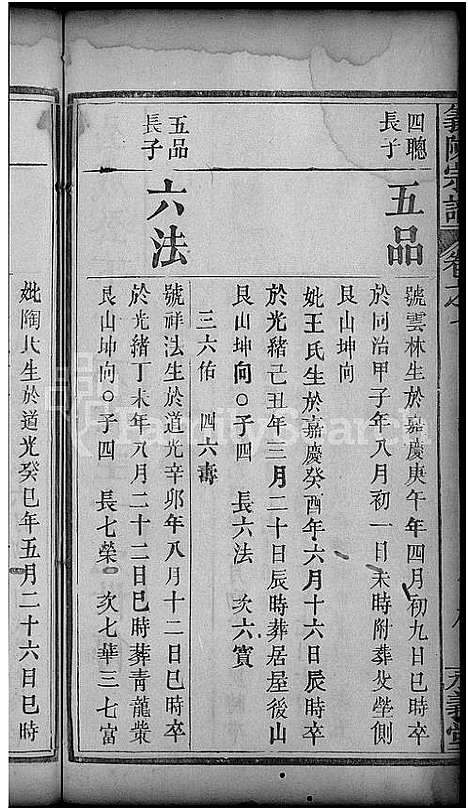 義陳宗譜
卷之
義堂
四聰
長子
五品
號雲林生於嘉慶庚午年四月初九日巳時卒
於同治甲子年八月初一日未時附葬父塋側
艮山坤向
妣王氏生於嘉慶癸酉年六月十六日辰時卒
於光緒己丑年三月二十日辰時葬居屋後山
艮山坤向○子四 長六法 次六賓
三六佑 四六壽
五品
長子
六法
號祥法生於道光辛卯年八月十二日巳時卒
於光緒丁未年八月二十二日巳時葬青龍棠
艮山坤向○子四 長七榮 次七華三七富
妣陶氏生於道光癸巳年五月二十六日巳時
FamilySearch